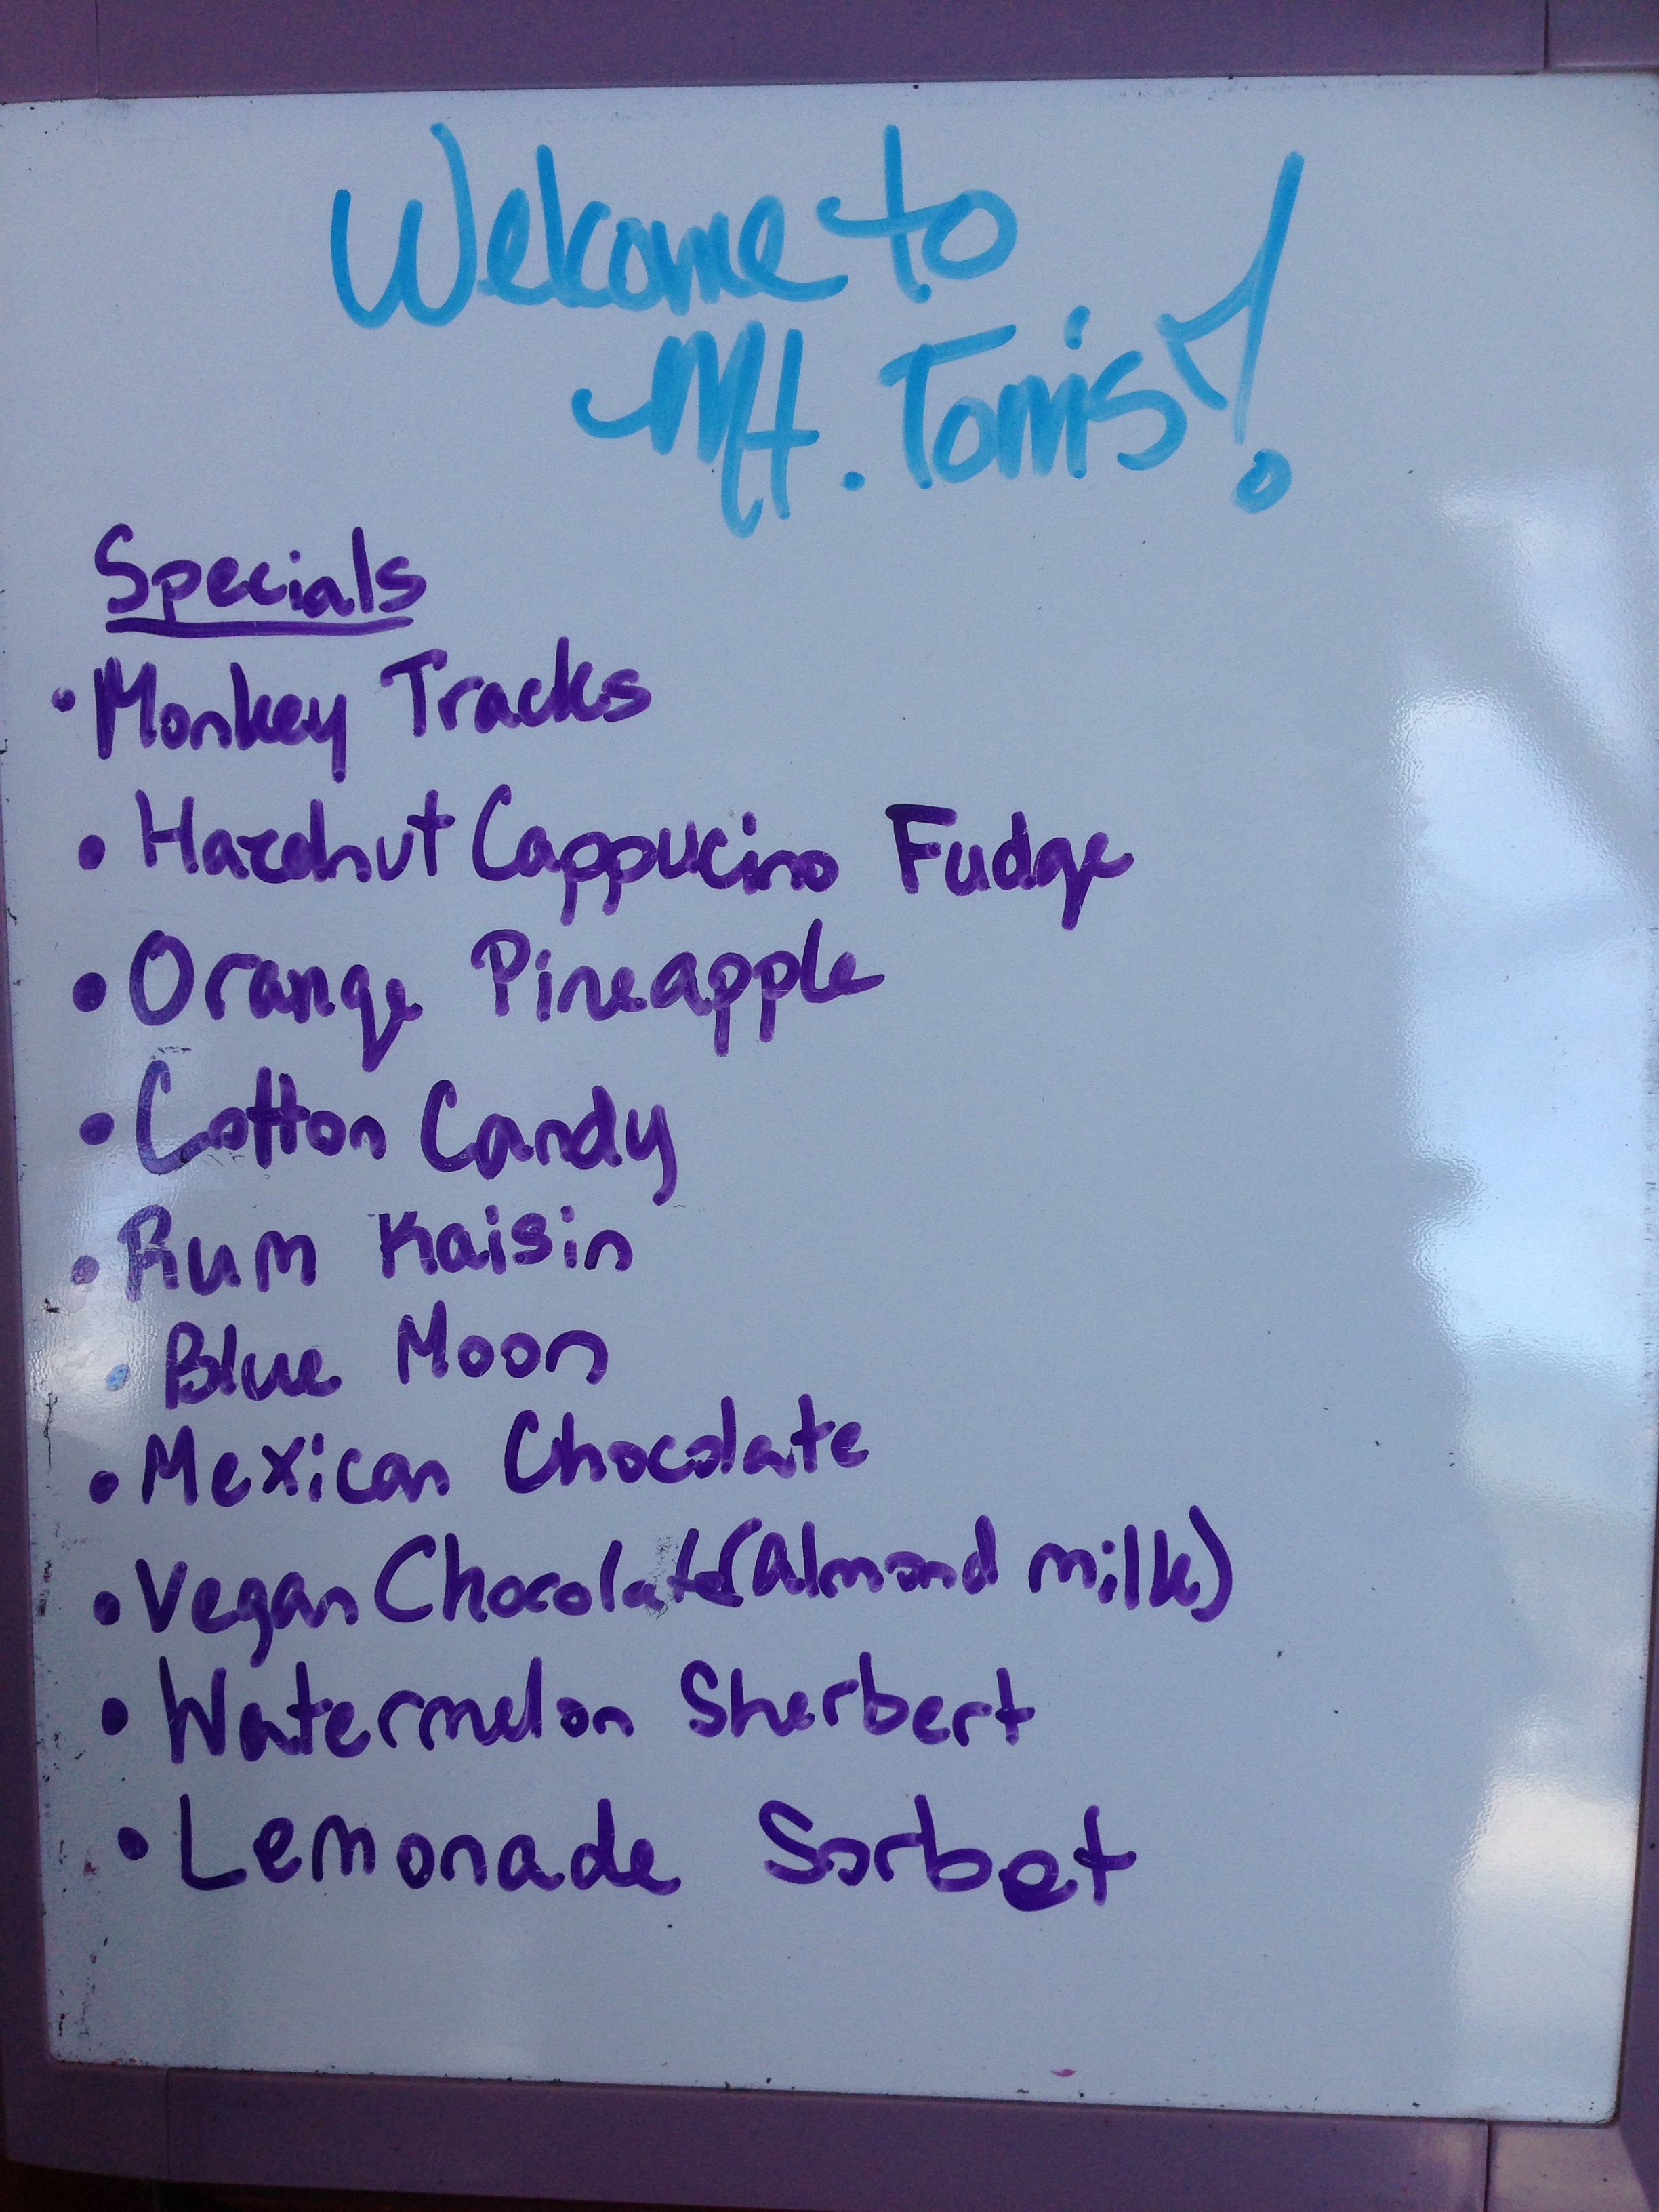 Welcome to
Mt. Tom's!
Specials
• Monkey Tracks
• Hazelnut Cappucino Fudge
• Orange Pineapple
• Cotton Candy
• Rum Raisin
• Blue Moon
• Mexican Chocolate
• Vegan Chocolate (Almond milk)
• Watermelon Sherbert
• Lemonade Sorbet